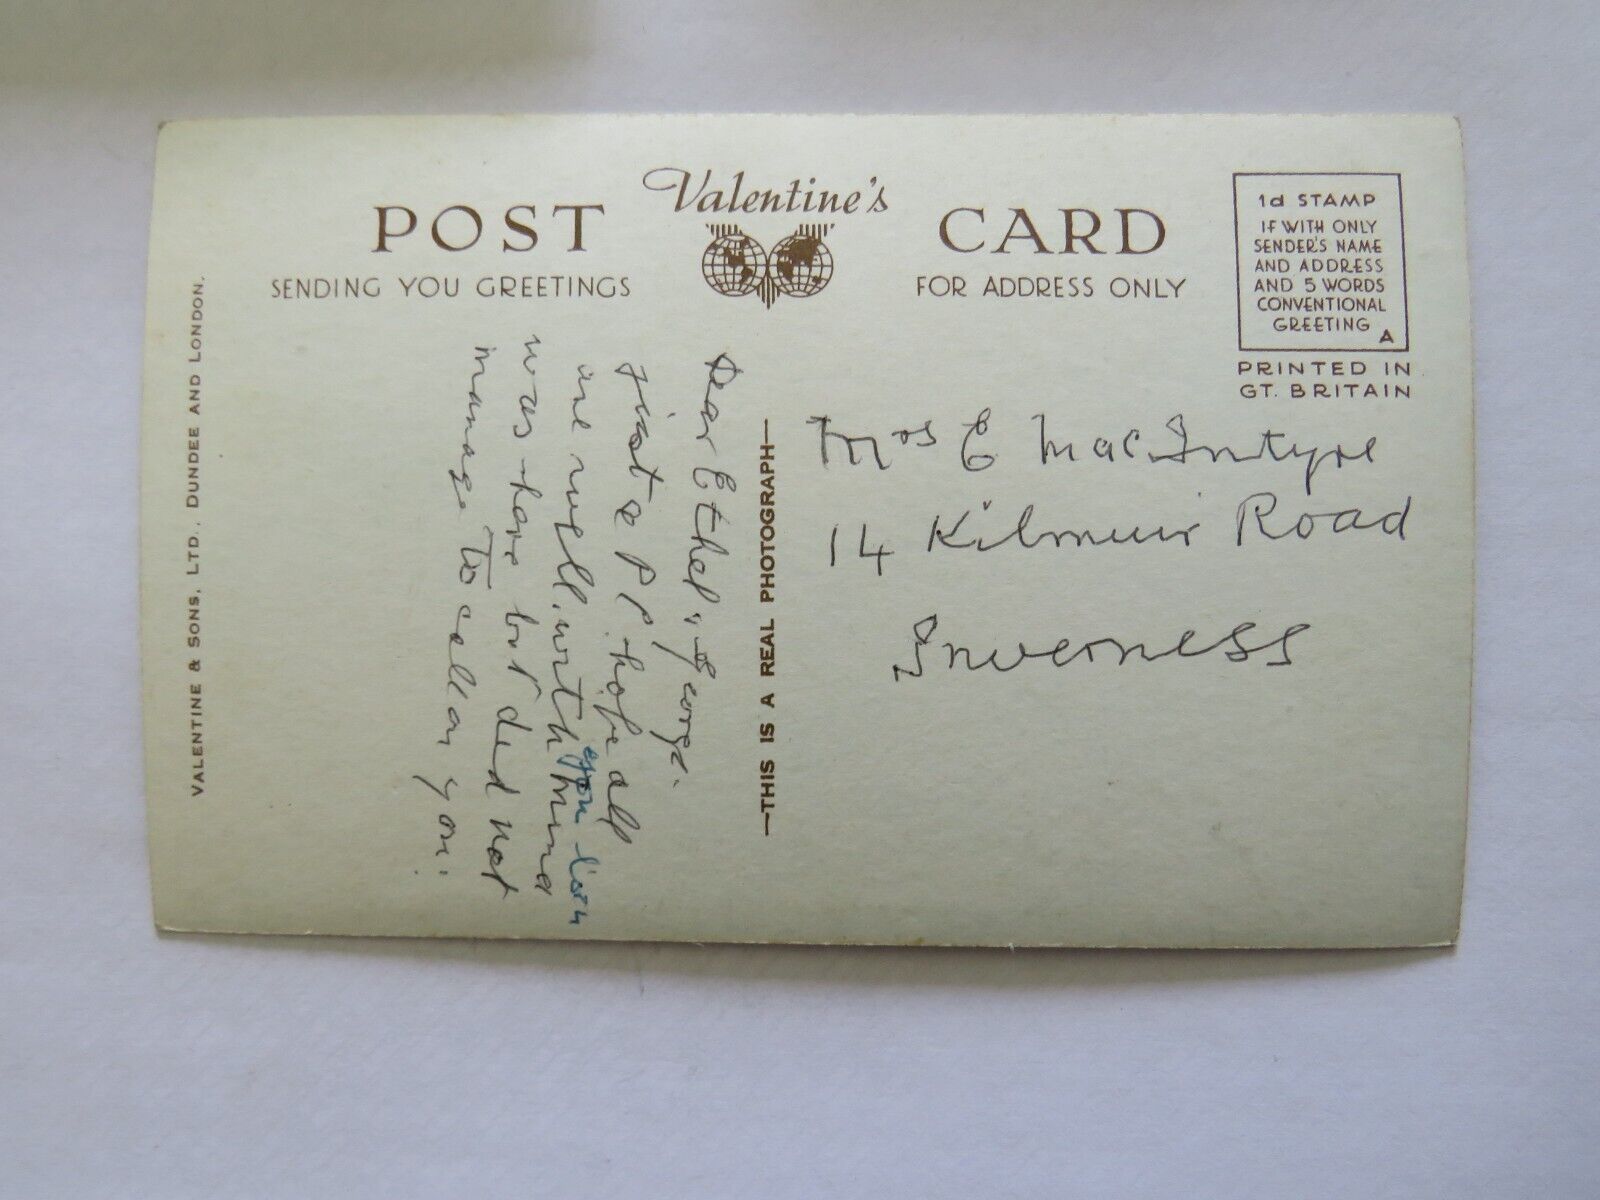 POST Valentine's CARD
SENDING YOU GREETINGS
FOR ADDRESS ONLY
1d STAMP
IF WITH ONLY
SENDER'S NAME
AND ADDRESS
AND 5 WORDS
CONVENTIONAL
GREETING
A
PRINTED IN
GT. BRITAIN
Dear Ethel, George.
just a P P. hope all
are well. with
was here but did not
manage to call on you.
—THIS IS A REAL PHOTOGRAPH—
Mrs E MacIntyre
14 Kilmuir Road
Inverness
VALENTINE & SONS, LTD., DUNDEE AND LONDON.